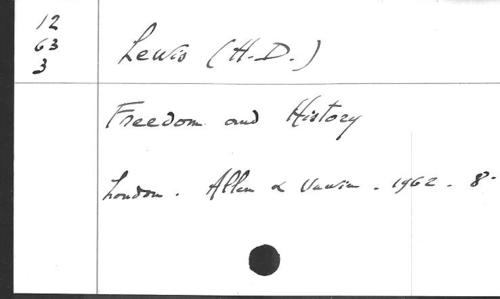 12
63
3
Lewis (H.D.)
Freedom and History
London. Allen & Unwin. 1962. 8-